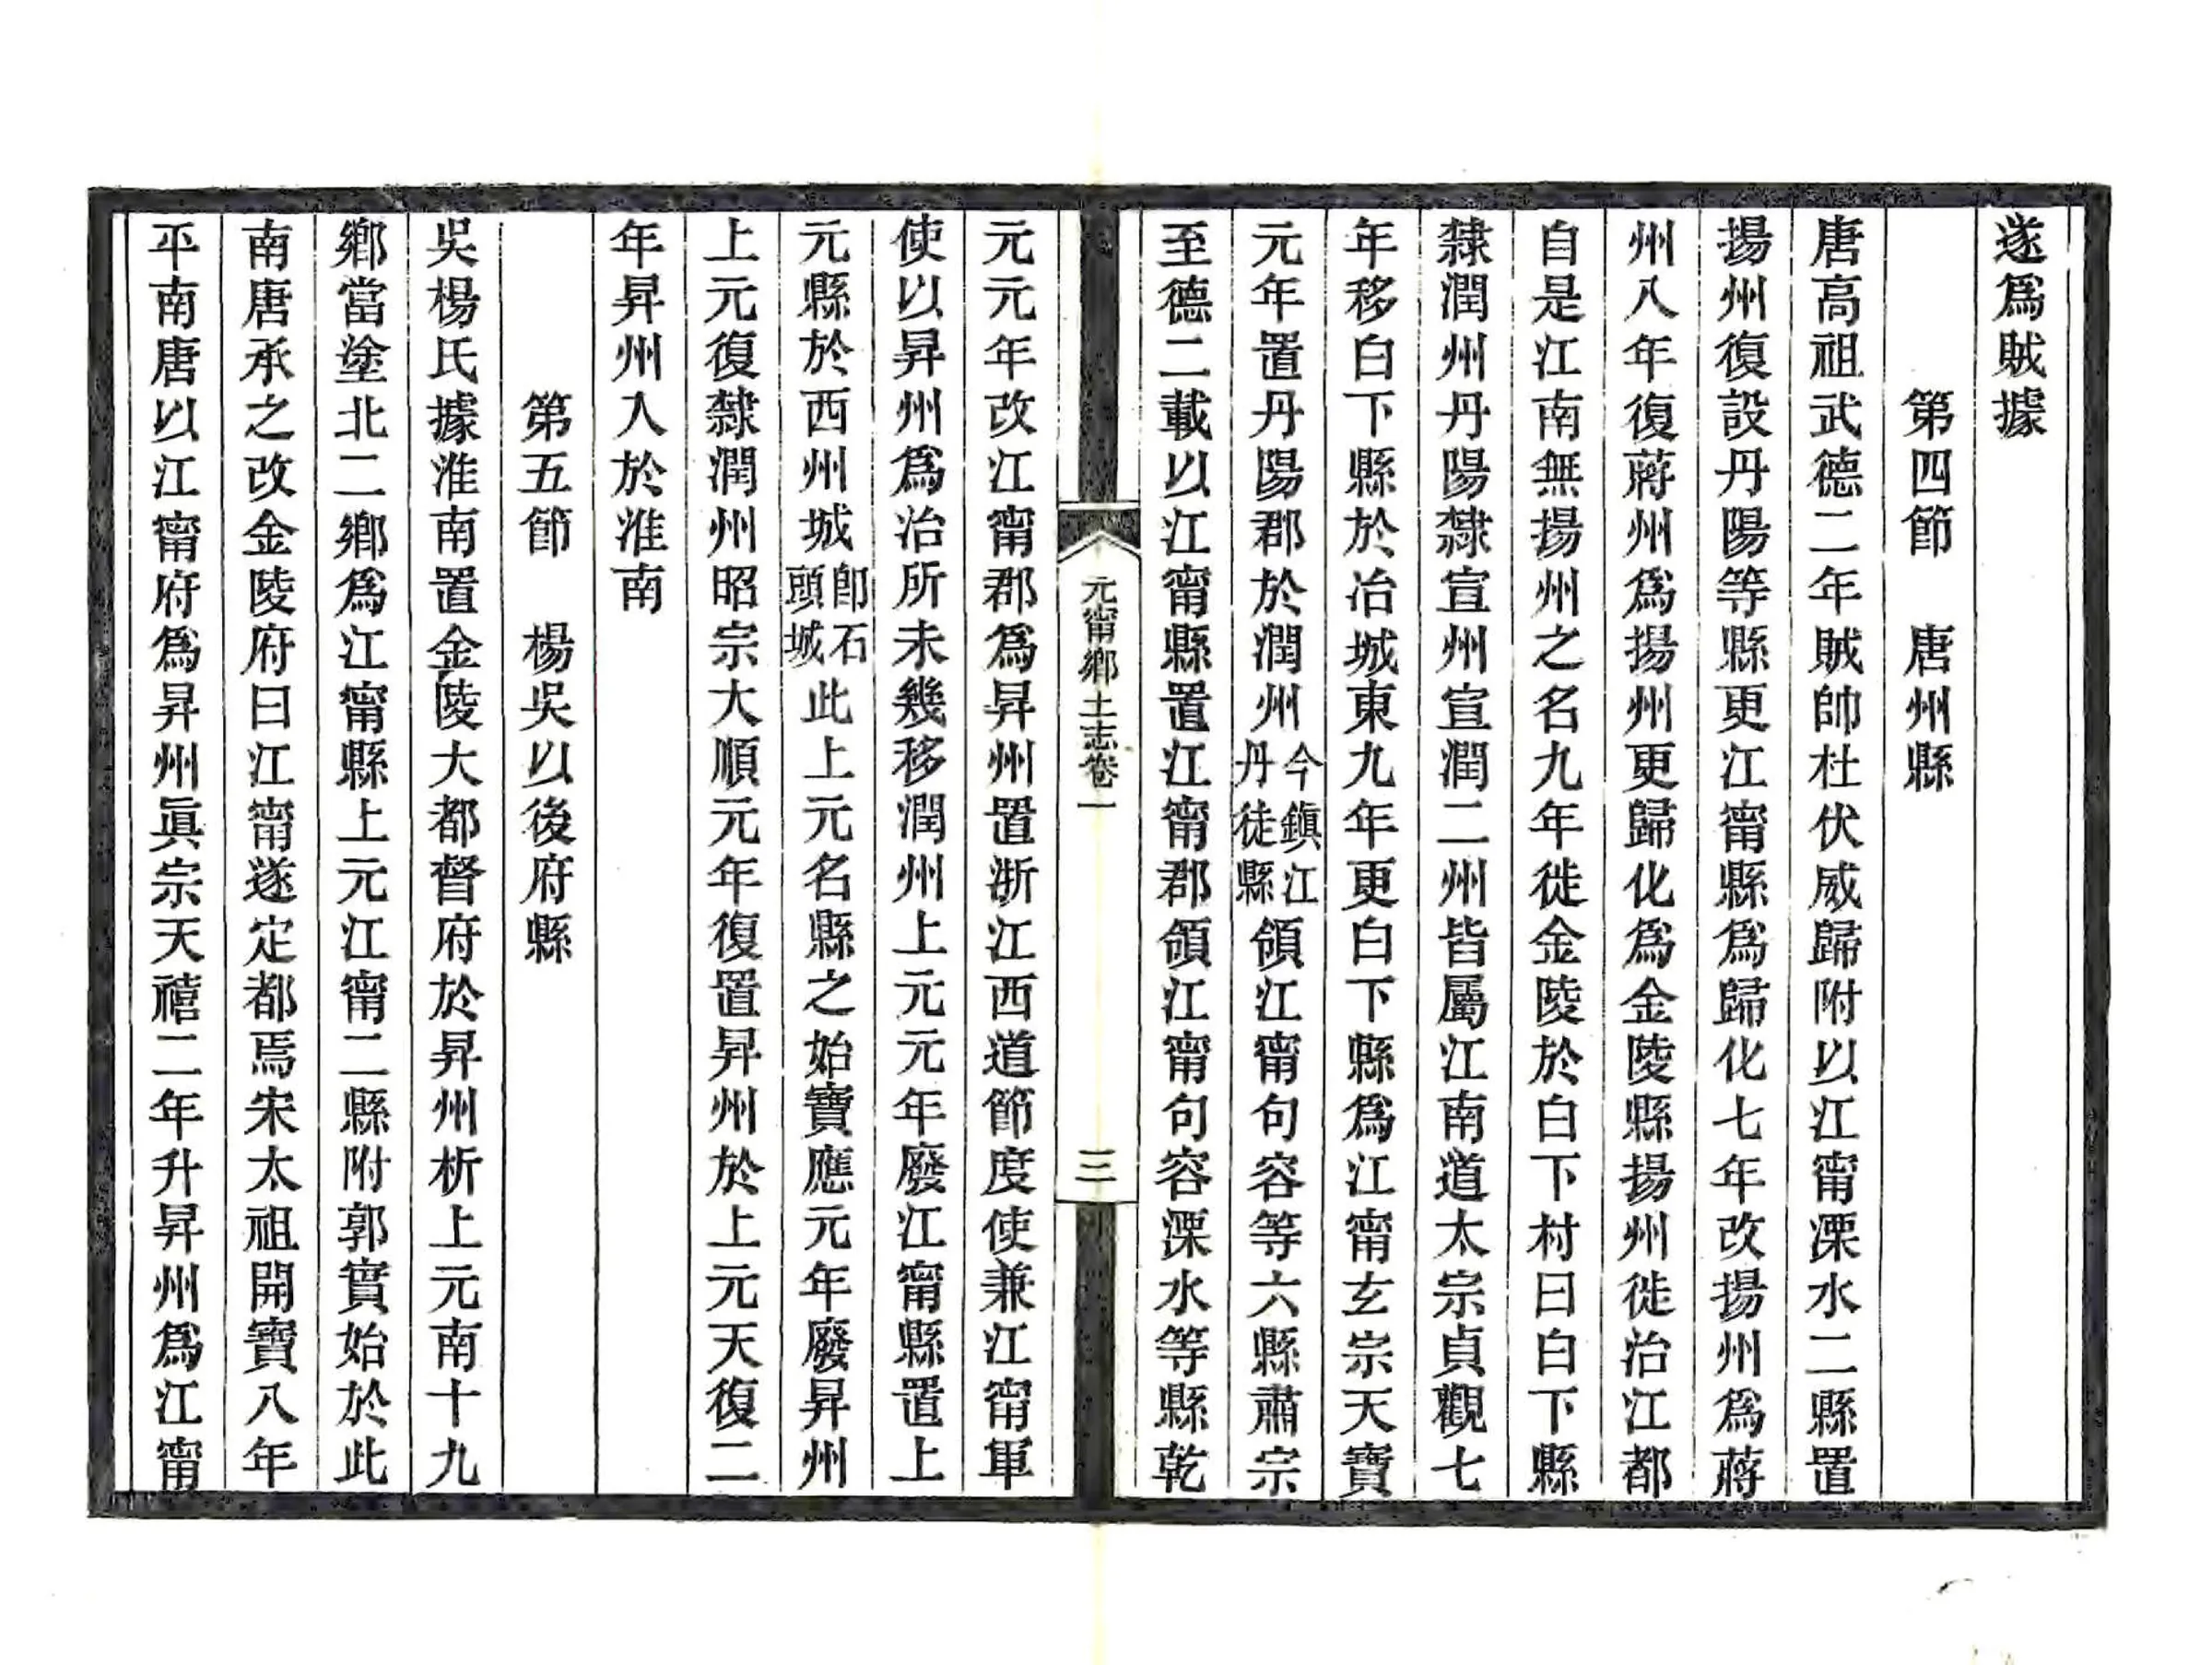 遂爲賊據
第四節　唐州縣
唐高祖武德二年賊帥杜伏威歸附以江甯溧水二縣置
揚州復設丹陽等縣更江甯縣爲歸化七年改揚州爲蔣
州八年復蔣州爲揚州更歸化爲金陵縣揚州徙治江都
自是江南無揚州之名九年徙金陵於白下村曰白下縣
隸潤州丹陽隸宣州宣潤二州皆屬江南道太宗貞觀七
年移白下縣於冶城東九年更白下縣爲江甯玄宗天寶
元年置丹陽郡於潤州今鎭江丹徒縣領江甯句容等六縣肅宗
至德二載以江甯縣置江甯郡領江甯句容溧水等縣乾
元甯鄉土志卷一
三
元元年改江甯郡爲昇州置浙江西道節度使兼江甯軍
使以昇州爲治所未幾移潤州上元元年廢江甯縣置上
元縣於西州城卽石頭城此上元名縣之始寶應元年廢昇州
上元復隸潤州昭宗大順元年復置昇州於上元天復二
年昇州入於淮南
第五節　楊吳以後府縣
吳楊氏據淮南置金陵大都督府於昇州析上元南十九
鄉當塗北二鄉爲江甯縣上元江甯二縣附郭實始於此
南唐承之改金陵府曰江甯遂定都焉宋太祖開寶八年
平南唐以江甯府爲昇州眞宗天禧二年升昇州爲江甯